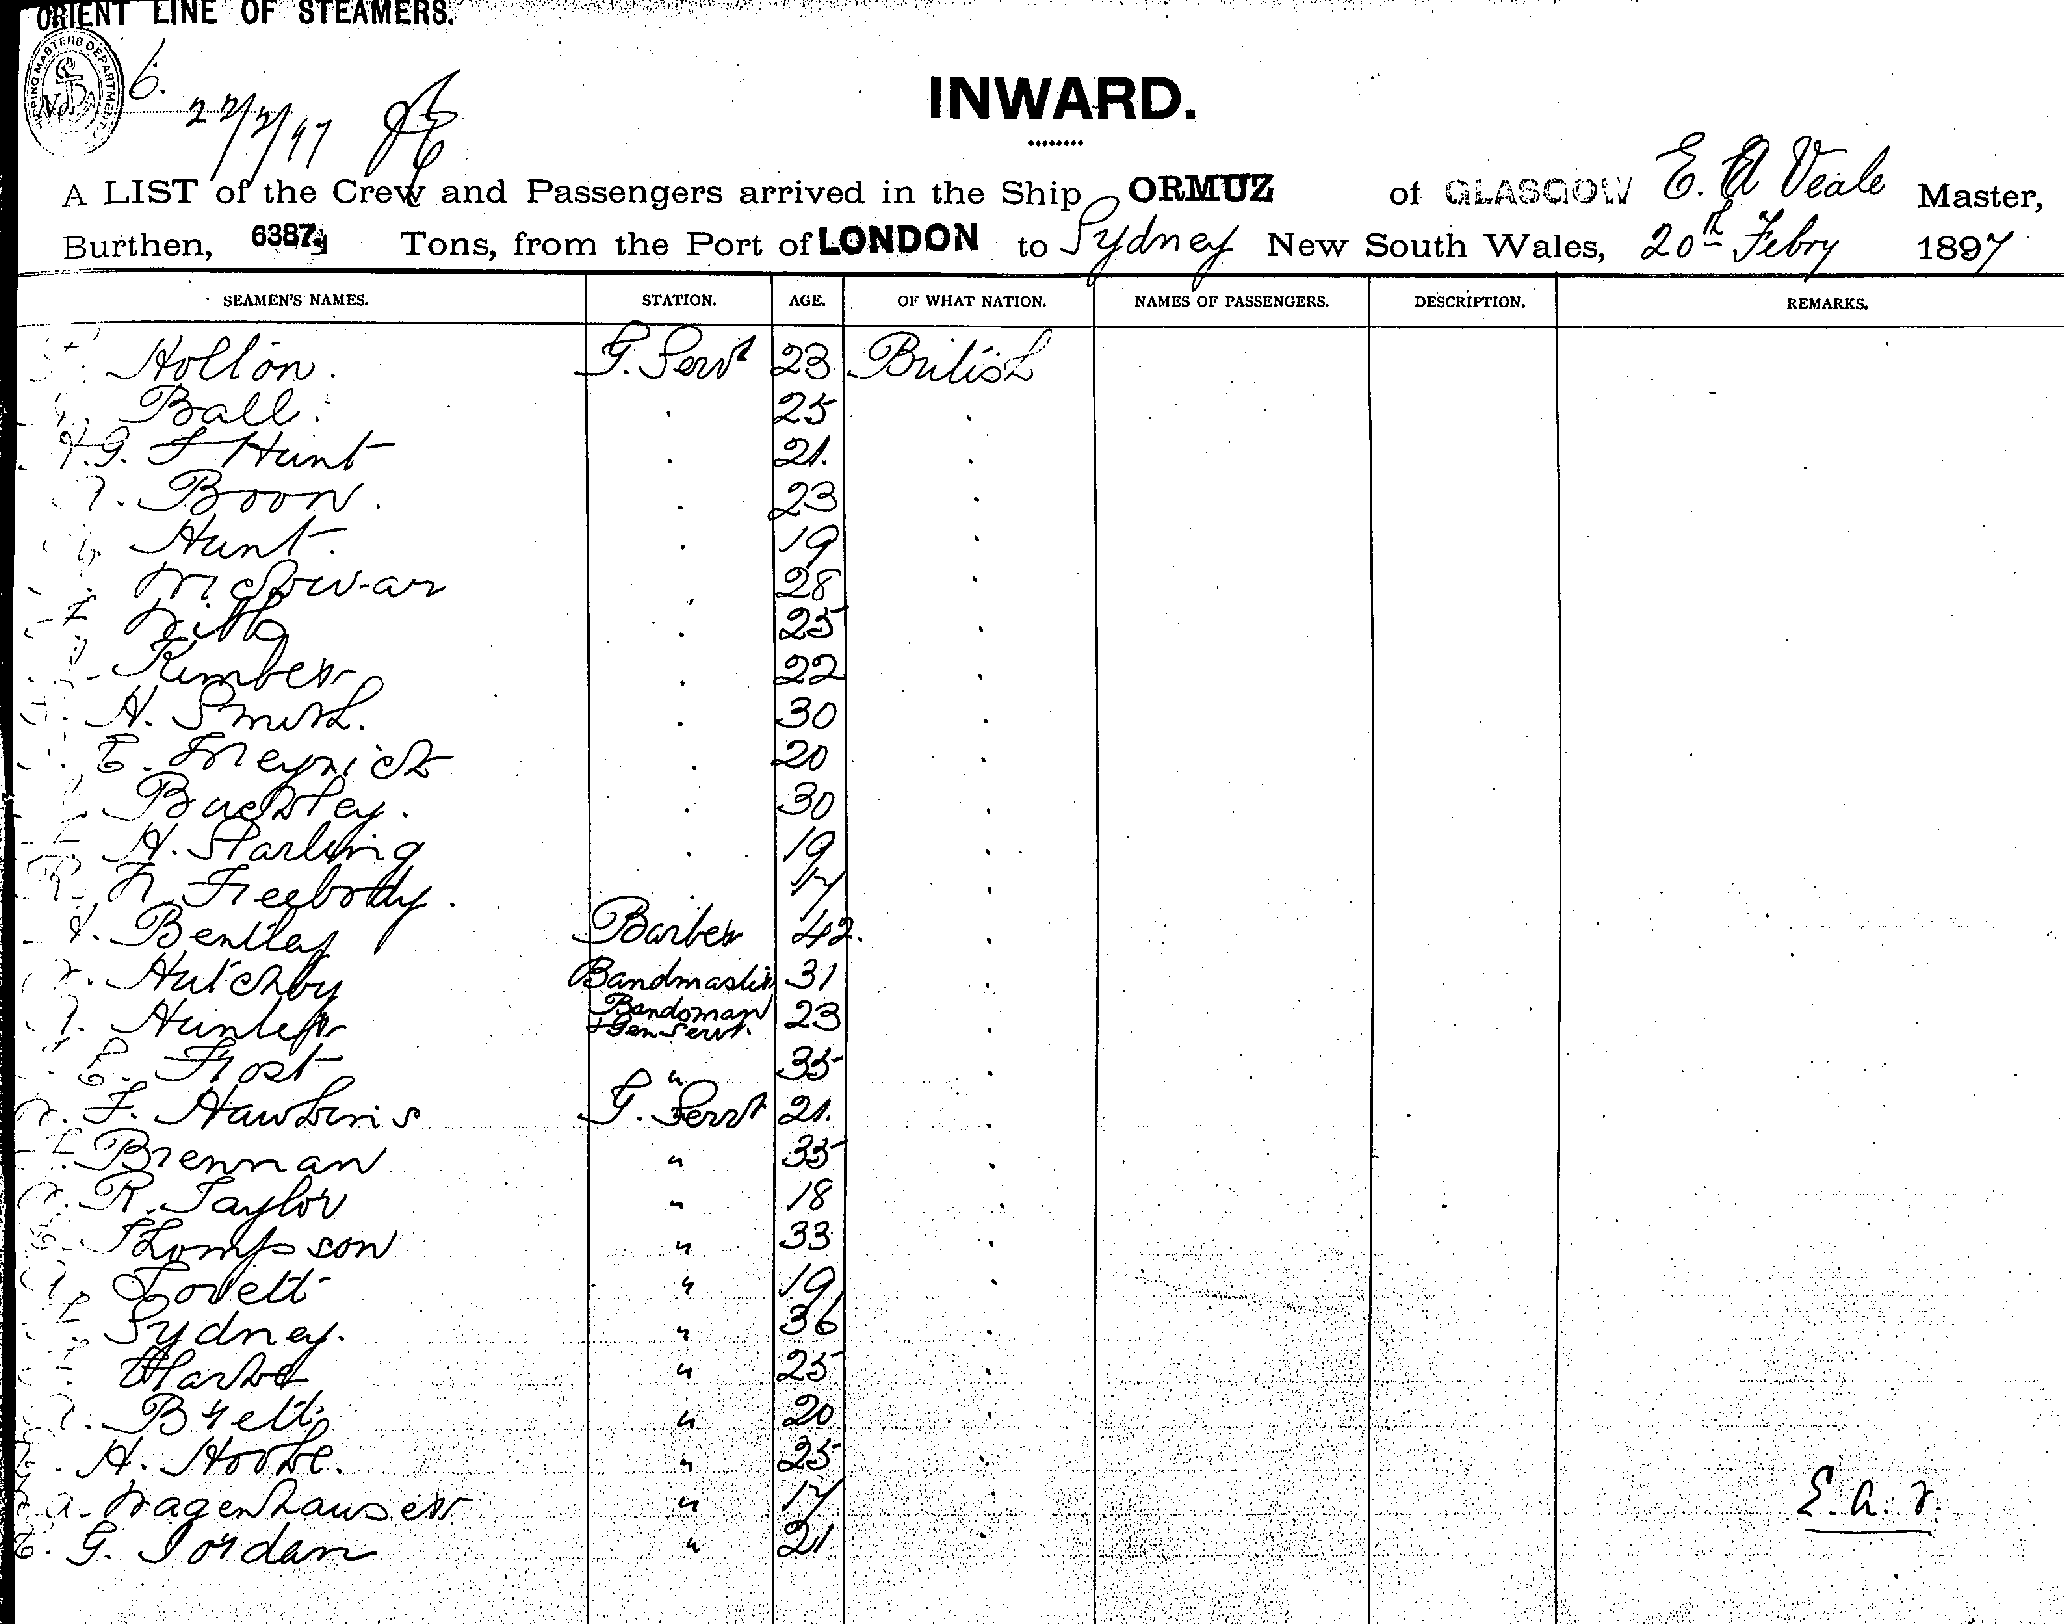 ORIENT LINE OF STEAMERS.
No. 6.
22/2/97
INWARD.
A LIST of the Crew and Passengers arrived in the Ship ORMUZ of GLASGOW E. A Veale Master,
Burthen, 6387 Tons, from the Port of LONDON to Sydney New South Wales, 20th Febry 1897
SEAMEN'S NAMES. STATION. AGE. OF WHAT NATION. NAMES OF PASSENGERS. DESCRIPTION. REMARKS.
Holton. G. Servt 23 British
Ball. . 25 .
G. F Hunt . 21. .
Boon. . 23 .
Hunt. . 19 .
28 .
. 25 .
Kimber . 22 .
H. Smith. . 30 .
E. Meyrick . 20 .
Buckley. . 30 .
H. Starling . 19 .
N. Freebody. . 17 .
Bentley Barber 42. .
Hutchby Bandmaster 31 .
Hunter Bandsman + Gen Servt. 23 .
E. Frost " 35 .
F. Hawkins G. Servt 21. .
Brennan " 35 .
R. Taylor " 18 .
Thompson " 33 .
Lovett " 19 .
Sydney. " 36 .
" 25 .
Brett " 20 .
H. Hooke. " 25 .
a. Wagenhauser " 17 .
G. Jordan " 21 .
E. a. V.